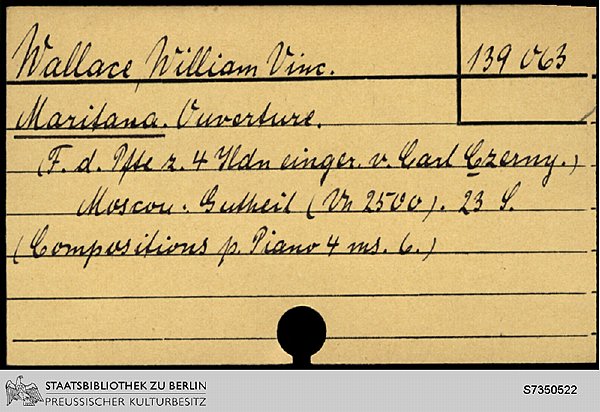 Wallace, William Vinc.
139 063
Maritana. Ouverture.
(F. d. Pfte z. 4 Hdn einger. v. Carl Czerny.)
Moscou: Gutheil (Vn 2500). 23 S.
(Compositions p. Piano 4 ms. 6.)
STAATSBIBLIOTHEK ZU BERLIN
PREUSSISCHER KULTURBESITZ
S7350522